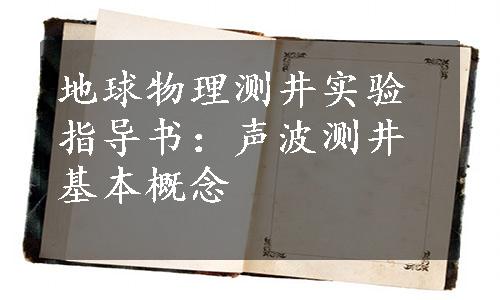 地球物理测井实验
指导书：声波测井
基本概念